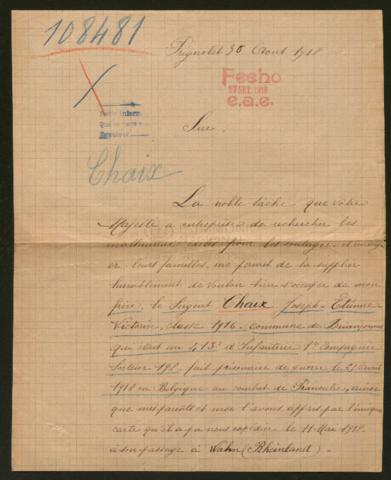 108481
Prignolet 30 Aout 1918
Fecho
27 SEL 1918
e.a.c.
Sire,
Chaix
La noble tâche que Votre
Majesté a entreprise de rechercher les
malheureux exilés pour les soulager et
leurs familles, me permet de la supplier
humblement de vouloir bien s'occuper de mon
frère, le Sergent Chaix Joseph Etienne
Victorin, classe 1916, commune de Briançonnet
qui était au 413e d'Infanterie 1re Compagnie
Secteur 198, fait prisonnier de guerre le 25 avril
1918 en Belgique au combat de
que mes parents et moi l'avons appris par l'unique
carte qu'il a pu nous expédier le 11 Mai 1918
à son passage à Wahn (Rheinland).